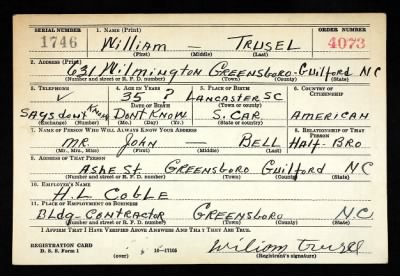 SERIAL NUMBER 1. NAME (Print) ORDER NUMBER
1746 William — TRUSEL 4073
(First) (Middle) (Last)
2. ADDRESS (Print)
631 Wilmington GREENSBORO - Guilford NC
(Number and street or R. F. D. number) (Town) (County) (State)
3. TELEPHONE 4. AGE IN YEARS 5. PLACE OF BIRTH 6. COUNTRY OF CITIZENSHIP
✓ 35 ? LANCASTER SC
DATE OF BIRTH (Town or county)
Says don't Know DON'T KNOW S. CAR. AMERICAN
(Exchange) (Number) (Mo.) (Day) (Yr.) (State or country)
7. NAME OF PERSON WHO WILL ALWAYS KNOW YOUR ADDRESS 8. RELATIONSHIP OF THAT PERSON
MR. John — BELL Half-Bro
(Mr., Mrs., Miss) (First) (Middle) (Last)
9. ADDRESS OF THAT PERSON
Ashe St. Greensboro Guilford NC
(Number and street or R. F. D. number) (Town) (County) (State)
10. EMPLOYER'S NAME
H.L. Coble
11. PLACE OF EMPLOYMENT OR BUSINESS
Bldg-Contractor GREENSBORO N.C.
(Number and street or R. F. D. number) (Town) (County) (State)
I AFFIRM THAT I HAVE VERIFIED ABOVE ANSWERS AND THAT THEY ARE TRUE.
REGISTRATION CARD
D. S. S. Form 1 (over) 16—17105 Wiliom Trusell
(Registrant's signature)